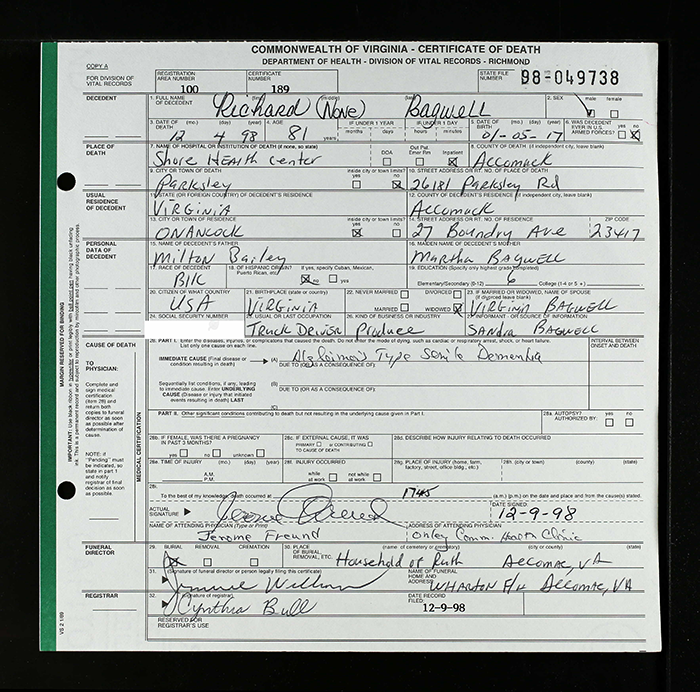 COMMONWEALTH OF VIRGINIA - CERTIFICATE OF DEATH
DEPARTMENT OF HEALTH - DIVISION OF VITAL RECORDS - RICHMOND
COPY A
FOR DIVISION OF VITAL RECORDS
REGISTRATION AREA NUMBER 100
CERTIFICATE NUMBER 189
STATE FILE NUMBER 98-049738
DECEDENT
1. FULL NAME OF DECEDENT (first) (middle) (last)
Richard (None) Bagwell
2. SEX male female
3. DATE OF DEATH (mo.) (day) (year)
12 4 98
4. AGE 81 years
IF UNDER 1 YEAR months days
IF UNDER 1 DAY hours minutes
5. DATE OF BIRTH (mo.) (day) (year)
01-05-17
6. WAS DECEDENT EVER IN U.S. ARMED FORCES? yes no
PLACE OF DEATH
7. NAME OF HOSPITAL OR INSTITUTION OF DEATH (if none, so state)
Shore Health Center
DOA Out Pat. Emer Rm Inpatient
8. COUNTY OF DEATH (if independent city, leave blank)
Accomack
9. CITY OR TOWN OF DEATH inside city or town limits? yes no
Parksley
10. STREET ADDRESS OR RT. NO. OF PLACE OF DEATH
26181 Parksley Rd
USUAL RESIDENCE OF DECEDENT
11. STATE (OR FOREIGN COUNTRY) OF DECEDENT'S RESIDENCE
Virginia
12. COUNTY OF DECEDENT'S RESIDENCE (if independent city, leave blank)
Accomack
13. CITY OR TOWN OF RESIDENCE inside city or town limits? yes no
Onancock
14. STREET ADDRESS OR RT. NO. OF RESIDENCE ZIP CODE
27 Boundry Ave 23417
PERSONAL DATA OF DECEDENT
15. NAME OF DECEDENT'S FATHER
Milton Bailey
16. MAIDEN NAME OF DECEDENT'S MOTHER
Martha Bagwell
17. RACE OF DECEDENT
Blk
18. OF HISPANIC ORIGIN? If yes, specify Cuban, Mexican, Puerto Rican, etc. no yes
19. EDUCATION (Specify only highest grade completed)
Elementary/Secondary (0-12) 6 College (1-4 or 5+)
20. CITIZEN OF WHAT COUNTRY
USA
21. BIRTHPLACE (state or country)
Virginia
22. NEVER MARRIED DIVORCED
MARRIED WIDOWED
23. IF MARRIED OR WIDOWED, NAME OF SPOUSE (if divorced leave blank)
Virginia Bagwell
24. SOCIAL SECURITY NUMBER
25. USUAL OR LAST OCCUPATION
Truck Driver
26. KIND OF BUSINESS OR INDUSTRY
Produce
27. INFORMANT - OR SOURCE OF INFORMATION
Sandra Bagwell
CAUSE OF DEATH
28. PART I. Enter the diseases, injuries, or complications that caused the death. Do not enter the mode of dying, such as cardiac or respiratory arrest, shock, or heart failure.
List only one cause on each line.
INTERVAL BETWEEN ONSET AND DEATH
IMMEDIATE CAUSE (Final disease or condition resulting in death) (A)
Alzheimers Type Senile Dementia
DUE TO (OR AS A CONSEQUENCE OF):
Sequentially list conditions, if any, leading to immediate cause. Enter UNDERLYING CAUSE (Disease or injury that initiated events resulting in death) LAST
(B)
DUE TO (OR AS A CONSEQUENCE OF):
(C)
PART II. Other significant conditions contributing to death but not resulting in the underlying cause given in Part I.
28a. AUTOPSY? AUTHORIZED BY: yes no
TO PHYSICIAN:
Complete and sign medical certification (item 28) and return both copies to funeral director as soon as possible after determination of cause.
NOTE: if "Pending" must be indicated, so state in part 1 and notify registrar of final decision as soon as possible.
MEDICAL CERTIFICATION
28b. IF FEMALE, WAS THERE A PREGNANCY IN PAST 3 MONTHS?
yes no unknown
28c. IF EXTERNAL CAUSE, IT WAS
PRIMARY or CONTRIBUTING
TO CAUSE OF DEATH
28d. DESCRIBE HOW INJURY RELATING TO DEATH OCCURRED
28e. TIME OF INJURY (mo.) (day) (year)
A.M.
P.M.
28f. INJURY OCCURRED
while at work not while at work
28g. PLACE OF INJURY (home, farm, factory, street, office bldg., etc.)
28h. (city or town) (county) (state)
28i.
To the best of my knowledge death occurred at 1745 (a.m.) (p.m.) on the date and place and from the cause(s) stated.
ACTUAL SIGNATURE
Jerome Freund
DATE SIGNED:
12-9-98
NAME OF ATTENDING PHYSICIAN (Type or Print)
Jerome Freund
ADDRESS OF ATTENDING PHYSICIAN
Onley Comm. Health Clinic
FUNERAL DIRECTOR
29. BURIAL REMOVAL CREMATION
30. PLACE OF BURIAL, REMOVAL, ETC. (name of cemetery or crematory) (city or county) (state)
Household of Ruth Accomac, VA
31. (signature of funeral director or person legally filing this certificate)
NAME OF FUNERAL HOME AND ADDRESS
Wharton F/H Accomac, VA
REGISTRAR
32. (signature of registrar)
Cynthia Bull
DATE RECORD FILED:
12-9-98
RESERVED FOR REGISTRAR'S USE
VS 2 1/89
MARGIN RESERVED FOR BINDING